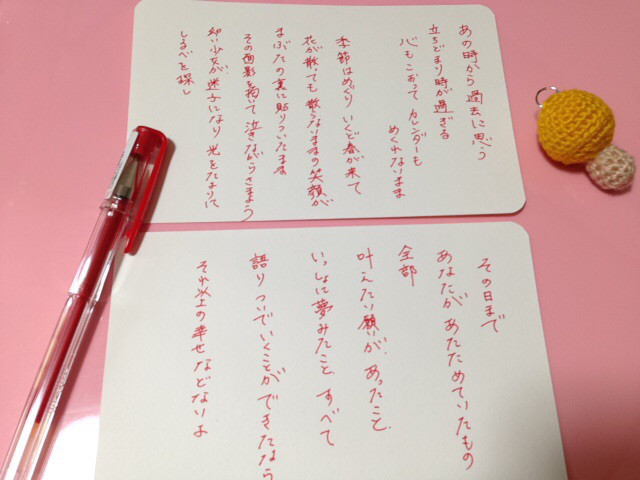 あの時から 過去に思う
立ちどまり 時が過ぎる
心もこおって カレンダーも
めくれないまま
季節はめぐり いくど春が来て
花が散っても 散らないままの笑顔が
まぶたの裏に貼りついたまま
その面影を抱いて 泣きながらさまよう
幼い少女が 迷子になり 光をたよりに
しるべを探し
その日まで
あなたが あたためていたもの
全部
叶えたい願いが、あったこと、
いっしょに夢みたこと すべて
語りついでいくことが できたなら
それ以上の幸せなどないよ